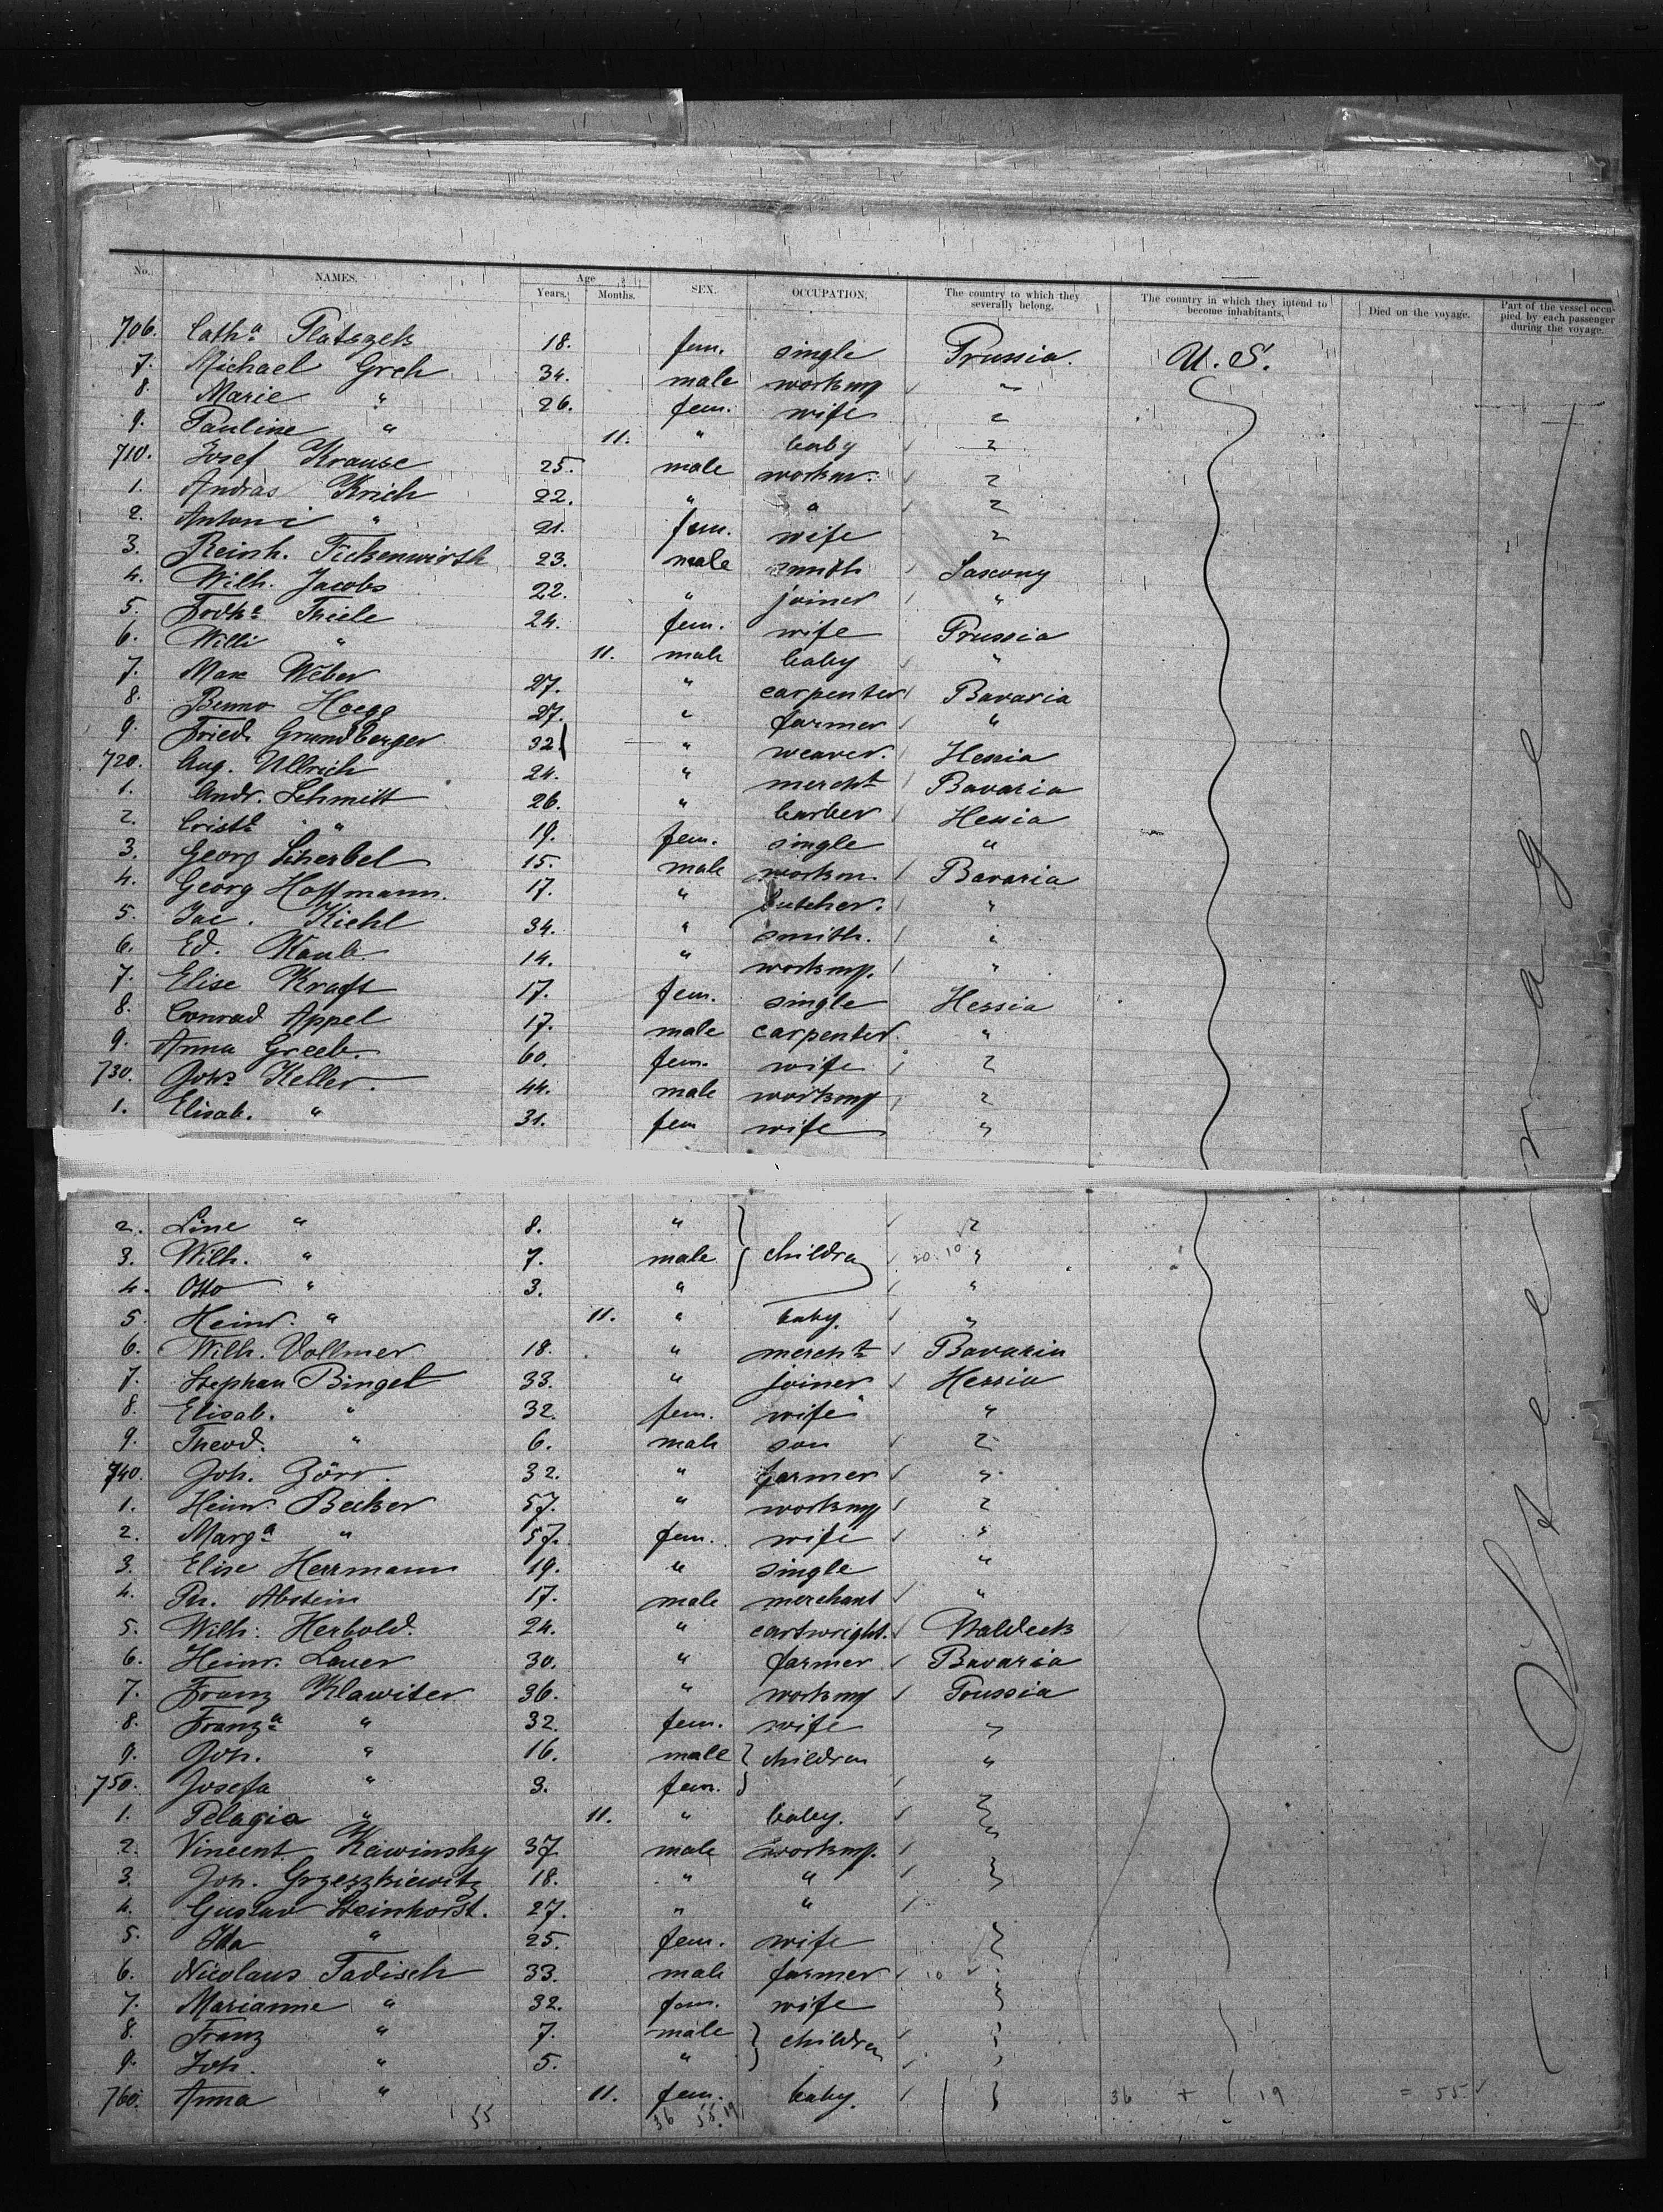 No. NAMES. Age Years. Months. SEX. OCCUPATION. The country to which they severally belong. The country in which they intend to become inhabitants. Died on the voyage. Part of the vessel occupied by each passenger during the voyage.
706. Cathª Platszek 18. fem. single Prussia. U. S.
7. Michael Greh 34. male workmg "
8. Marie " 26. fem. wife "
9. Pauline " 11. " baby "
710. Josef Krause 25. male workm. "
1. Andras Krich 22. " " "
2. Antoni " 21. fem. wife "
3. Reinh. Fickenwirth 23. male smith Saxony
4. Wilh. Jacobs 22. " joiner "
5. Thiele 24. fem. wife Prussia
6. Willi " 11. male baby "
7. Max Weber 27. " carpenter Bavaria
8. Benno Haegg 27. " farmer "
9. Fried. Grundberger 32 " weaver. Hessia
720. Aug. Ullrich 24. " mercht Bavaria
1. Andr. Schmitt 26. " barber Hessia
2. " 19. fem. single "
3. Georg Scherbel 15. male workm. Bavaria
4. Georg Hoffmann. 17. " butcher. "
5. Jac. Kiehl 34. " smith. "
6. Ed. 14. " workmg. "
7. Elise Kraft 17. fem. single Hessia
8. Conrad Appel 17. male carpenter "
9. Anna Greeb. 60. fem. wife "
730. Johs Keller. 44. male workmg "
1. Elisab. " 31. fem wife "
2. Line " 8. " "
3. Wilh. " 7. male children "
4. Otto " 3. " "
5. Heinr. " 11. " baby. "
6. Wilh. Vollmer 18. " mercht Bavaria
7. Stephan Bingel 33. " joiner Hessia
8. Elisab. " 32. fem. wife "
9. Theod. " 6. male son "
740. Joh. Zörr. 32. " farmer "
1. Heinr. Becker 57. " workmg "
2. Margª " 57. fem. wife "
3. Elise Herrmann 19. " single "
4. Ph. Abstein 17. male merchant "
5. Wilh. Herbold. 24. " cartwright. Waldeck
6. Heinr. Lauer 30. " farmer Bavaria
7. Franz Klawiter 36. " workmg Prussia
8. Franzª " 32. fem. wife "
9. Joh. " 16. male children "
750. Josefa " 3. fem. "
1. Pelagia " 11. " baby. "
2. Vincent Kawinsky 37. male workmg. "
3. Joh. Grzeszkiewitz 18. " " "
4. Gustav Steinhorst. 27. " "
5. Ida " 25. fem. wife "
6. Nicolaus Tadisch 33. male farmer 10
7. Marianne " 32. fem. wife "
8. Franz " 7. male children "
9. Joh. " 5. " "
760. Anna " 11. fem. baby. " 36 + 19 = 55
55 36 55. 19
Steerage